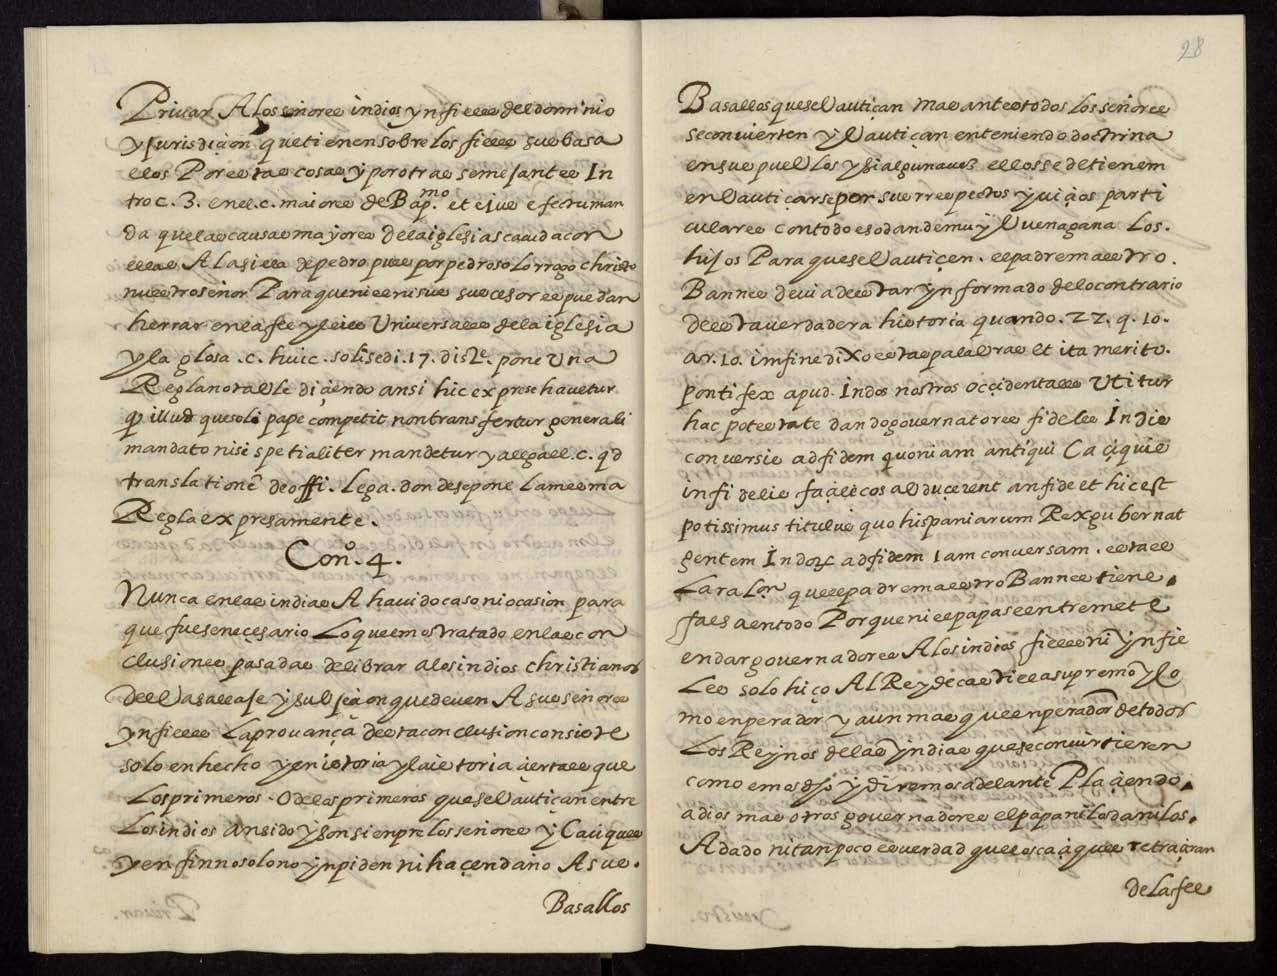 Priuar A los señores indios ynfieles del dominio
y Jurisdiçion que tienen sobre los fieles sus basa
llos Por estas cosas y por otras semejantes In
tro c. 3. en el. c. maiores de Bap.mo et eius efectu man
da que las causas mayores dela iglesia se acudacon
ellas A la silla de pedro pues por pedro solo rrogo christo
nuestro señor Para que ni el ni sus sucesores puedan
herrar en la fee y leies Uniuersales dela iglesia
y la glosa . c. huic . solis edi. 17. dist. pone Una
Regla notable diçiendo ansi hic exprese hauetur
qp illud que soli pape competit non transfertur generali
mandato nisi spetialiter mandetur y alega el. c. qd
translationē de offi. lega. donde se pone la mesma
Regla expresamente.
Con.o 4.
Nunca en las indias A hauido caso ni ocasion para
que fuese necesario Lo que emos tratado en las con
clusiones pasadas de librar a los indios christianos
del basallaje y subjeçion que deuen A sus señores
ynfieles La prouança desta conclusion consiste
solo en hecho y en istoria y la istoria çierta es que
Los primeros . O de los primeros que se bautiçan entre
Los indios an sido y son sienpre los señores y Caciques
y en fin no solo no ynpiden ni haçen daño A sus.
Basallos
28
Basallos que se bautiçan mas antes todos los señores
se conuierten y bautiçan en teniendo doctrina
en sus pueblos y si alguna uez ellos se detienen
en bautiçarse por sus rrespectos y uiçios parti
culares con todo eso dan de muy buena gana Los.
hijos Para que se bautiçen . el padre maestro .
Bannes deuia de estar ynformado de lo contrario
desta uerdadera historia quando . 22. q. 10.
ar. 10. imfine dixo estas palabras et ita merito.
pontifex apud . Indos nostros occidentales utitur
hac potestate dando gouernatores fideles Indis
conuersis ad fidem quoniam antiqui Caciquis
infideles façile eos abduçerent a nfide et hic est
potissimus titulus quo hispaniarum Rex gubernat
gentem Indorum ad fidem iam conuersam . esta es
La raçon que el padre maestro Bannes tiene .
falsa en todo Porque ni el papa se entremete
en dar gouernadores A los indios fieles ni ynfie
Les solo hiço Al Rey de castilla supremo y co
mo enperador y aun mas que enperador de todos
Los Reynos de las yndias que se conuirtieren
como emos dicho y diremos adelante Plaçiendo.
a dios mas otros gouernadores el papa ni los da ni los.
A dado ni tanpoco es uerdad que los caçiques retraçiran
de la fee